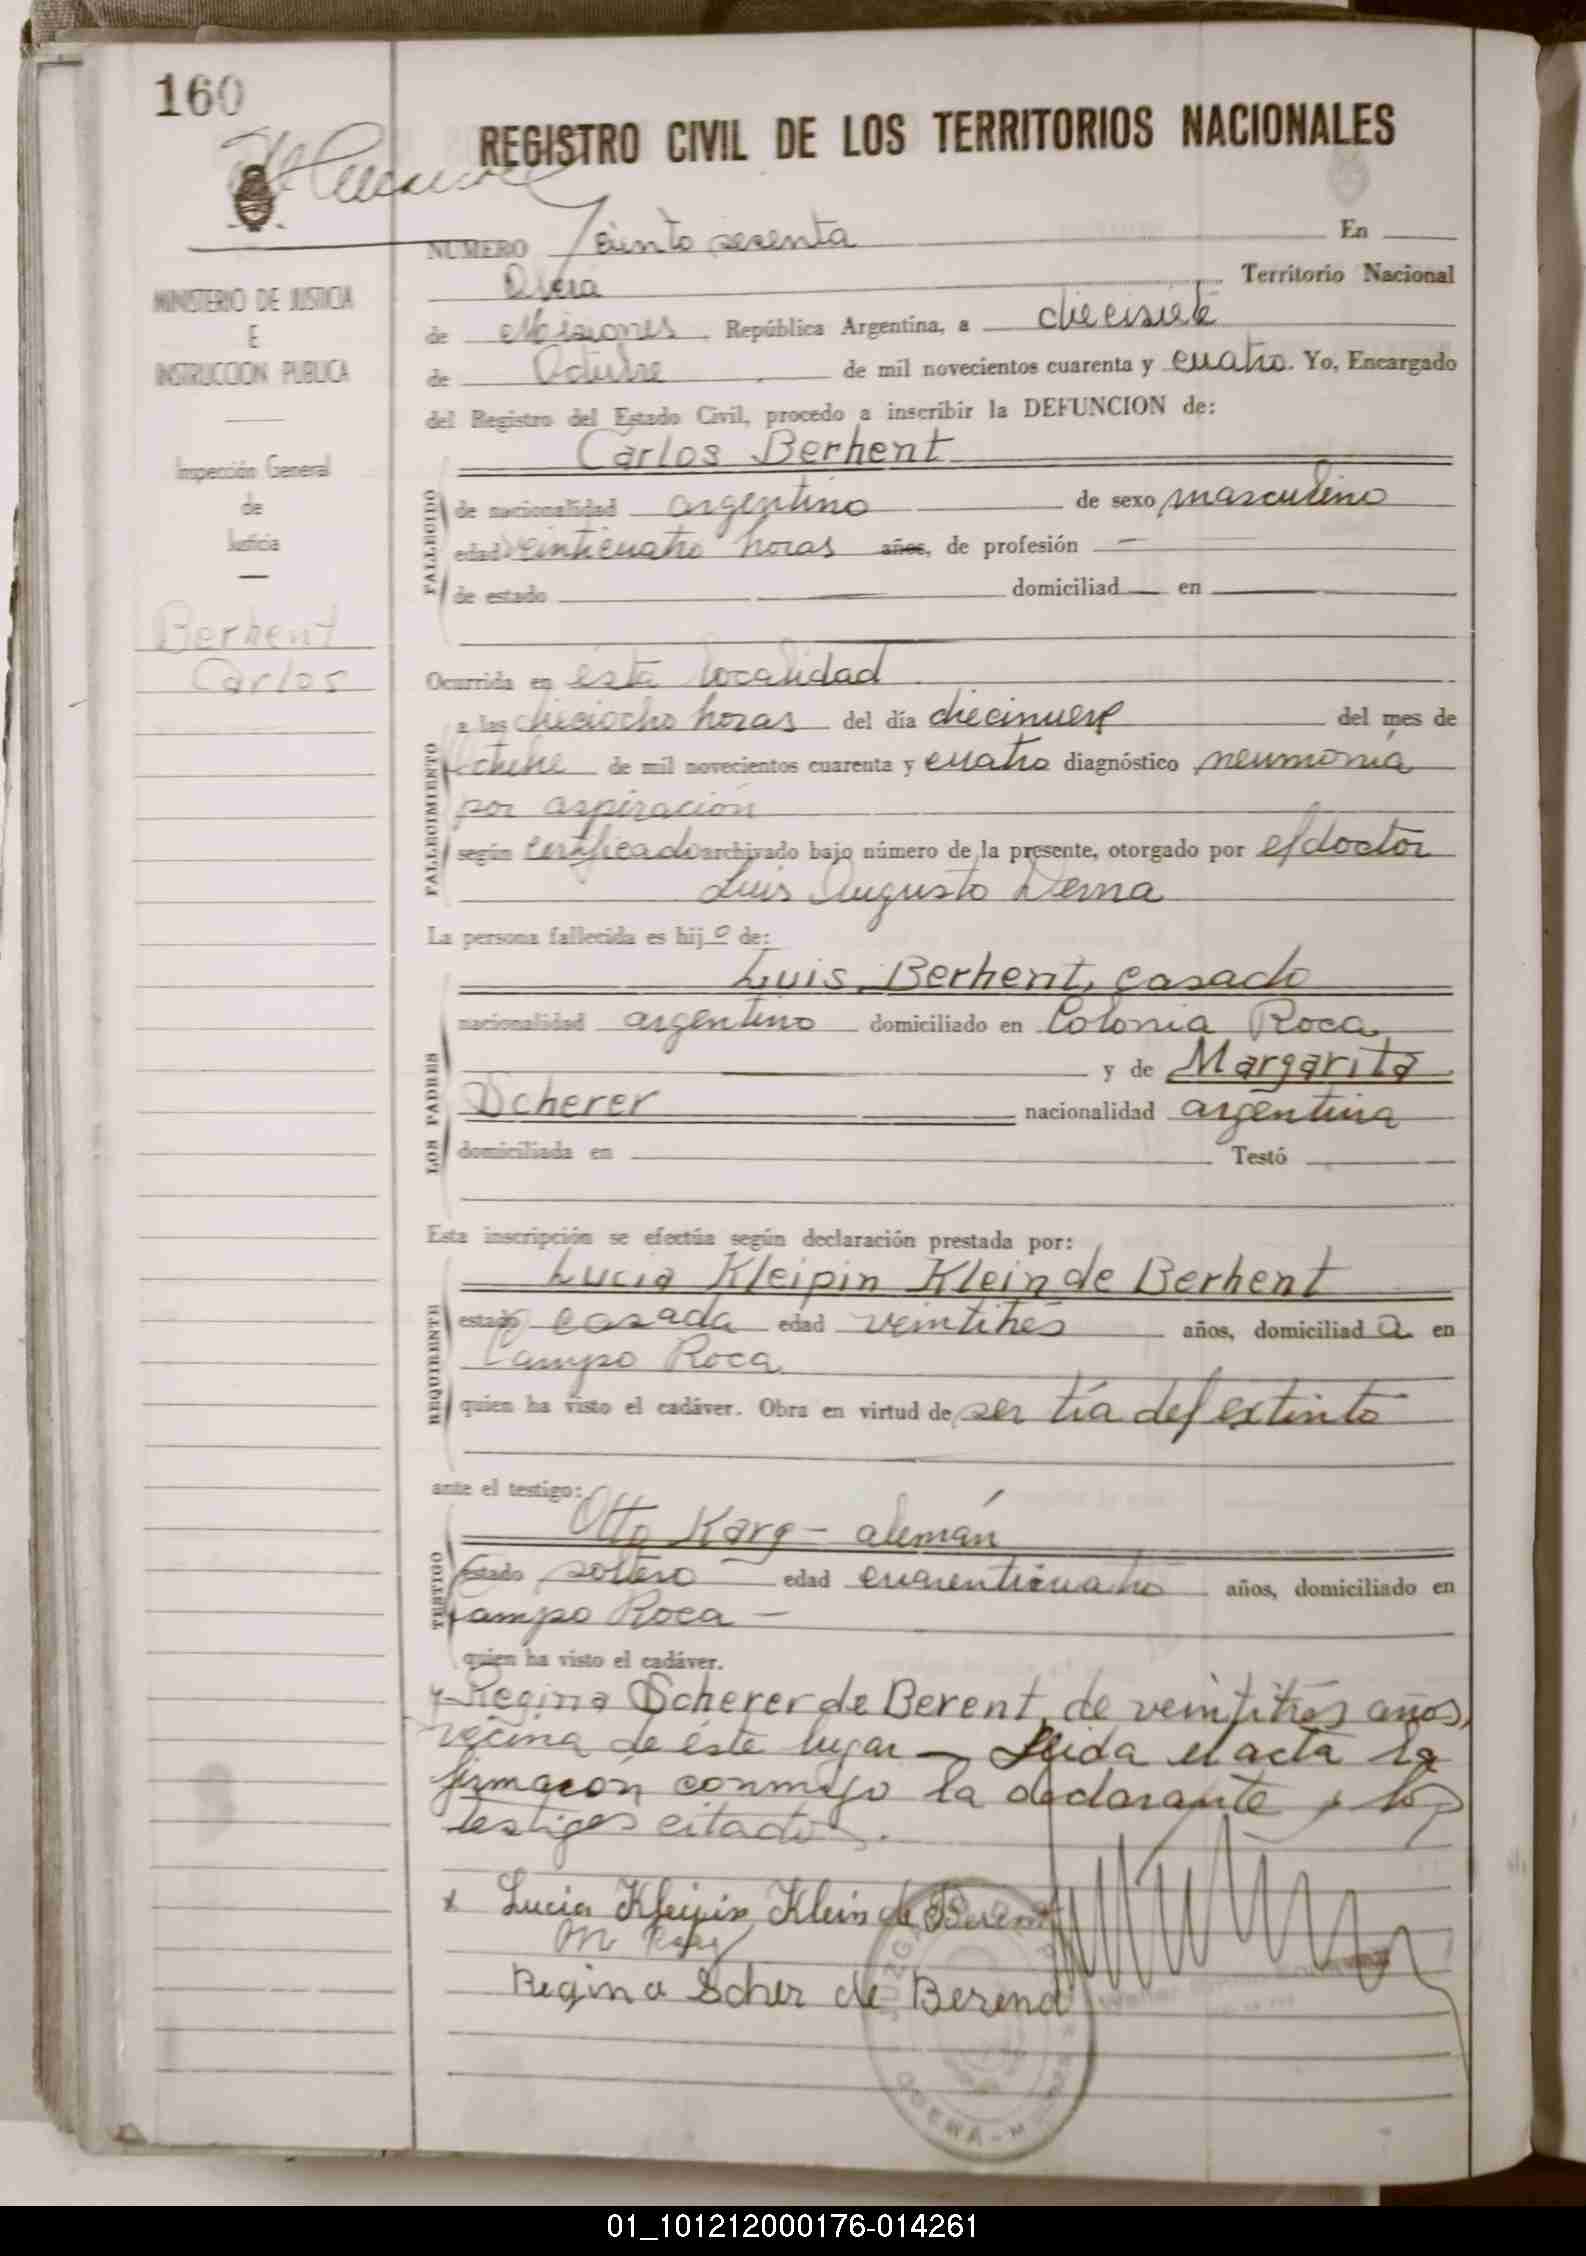 160
REGISTRO CIVIL DE LOS TERRITORIOS NACIONALES
NUMERO ciento sesenta En
Oberá Territorio Nacional
de Misiones, República Argentina, a diecisiete
de Octubre de mil novecientos cuarenta y cuatro. Yo, Encargado
del Registro del Estado Civil, procedo a inscribir la DEFUNCION de:
MINISTERIO DE JUSTICIA
E
INSTRUCCION PUBLICA
Inspección General
de
Justicia
Berhent
Carlos
Carlos Berhent
FALLECIDO
de nacionalidad argentino de sexo masculino
edad veinticuatro horas años, de profesión —
de estado domiciliad en
Ocurrida en esta localidad
FALLECIMIENTO
a las dieciocho horas del día diecinueve del mes de
Octubre de mil novecientos cuarenta y cuatro diagnóstico neumonía
por aspiración
según certificado archivado bajo número de la presente, otorgado por el doctor
Luis Augusto Derna
La persona fallecida es hijo de:
LOS PADRES
Luis Berhent, casado
nacionalidad argentino domiciliado en Colonia Roca
y de Margarita
Scherer nacionalidad argentina
domiciliada en Testó
Esta inscripción se efectúa según declaración prestada por:
REQUIRENTE
Lucia Kleipin Klein de Berhent
estado casada edad veintitrés años, domiciliada en
Campo Roca
quien ha visto el cadáver. Obra en virtud de ser tía del extinto
ante el testigo:
TESTIGO
Otto Karg – alemán
Estado soltero edad cuarenticuatro años, domiciliado en
Campo Roca –
quien ha visto el cadáver.
y Regina Scherer de Berent, de veintitrés años,
vecina de éste lugar – Leida el acta la
firmaron conmigo la declarante y los
testigos citados.
x Lucia Kleipin Klein de Berent
Regina Scher de Berend
01_101212000176-014261